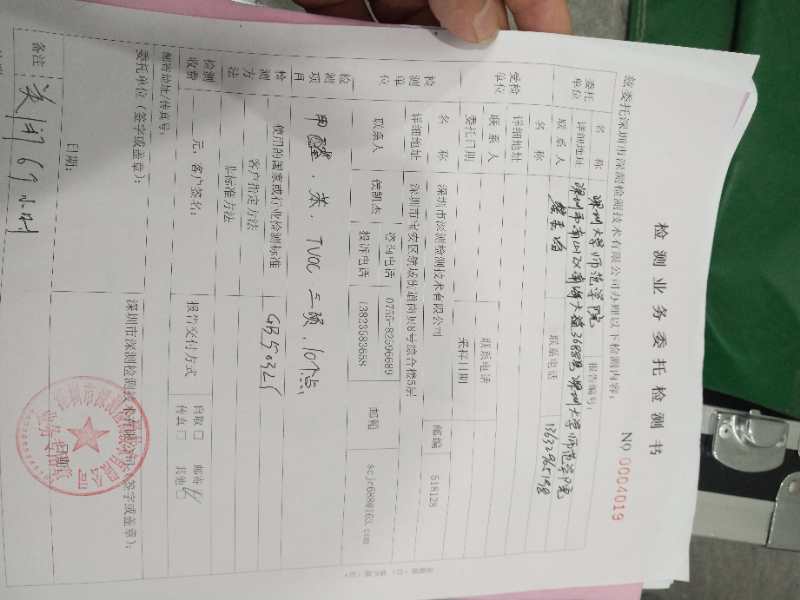 检测业务委托检测书
NO 0004019
兹委托深圳市深测检测技术有限公司办理以下检测内容：
委托单位 名称 深圳大学师范学院 报告编号：
详细地址 深圳市南山区南海大道3688号深圳大学师范学院
联系人 联系电话
受检单位 名称
详细地址
联系人 联系电话
委托日期 采样日期
检测单位 名称 深圳市深测检测技术有限公司 邮编 518128
详细地址
联系人 侯凯杰 咨询电话 0755-82596689 邮箱 scjc688@163.com
投诉电话 13823583658
检测项目 甲醛、苯、TVOC三项，10个点
检测方法 使用的国家或行业检测标准 GB50325
客户指定方法
非标准方法
检测收费 元，客户签名： 报告交付方式 自取□ 邮寄
传真□ 其他□
邮寄地址/传真号：
委托单位（签字或盖章）： 深圳市深测检测技术有限公司（签字或盖章）：
日期： 日期：
备注：